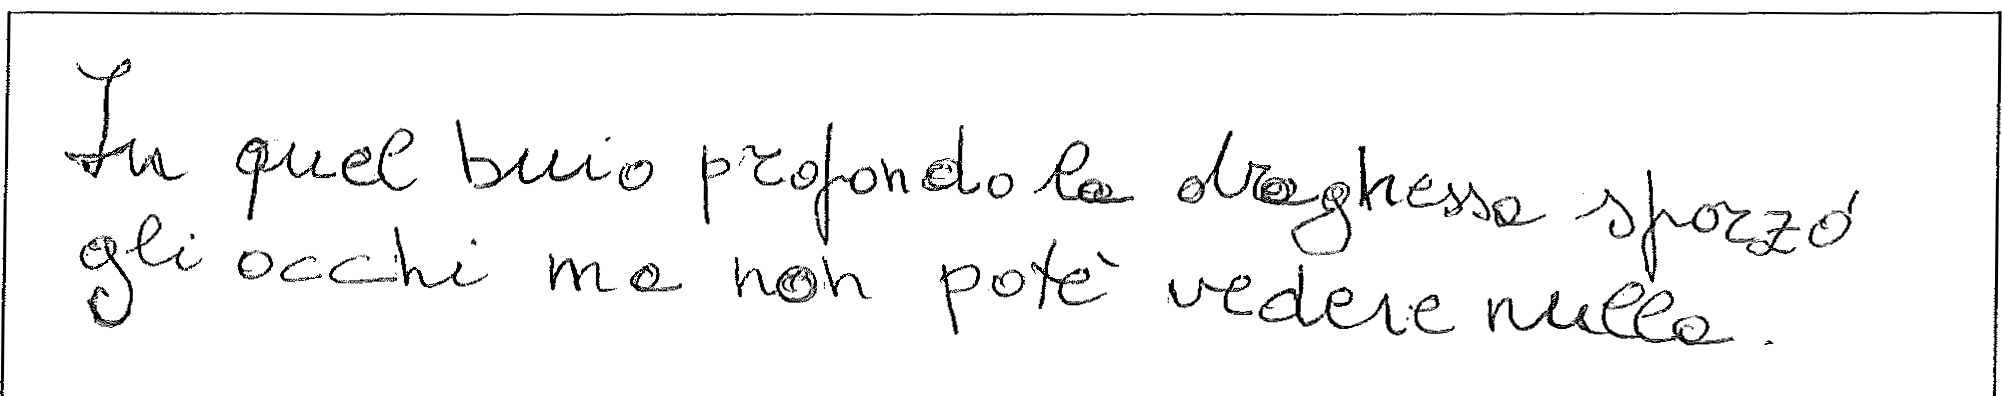 In quel buio profondo la draghessa sforzó
gli occhi ma non potè vedere nulla.